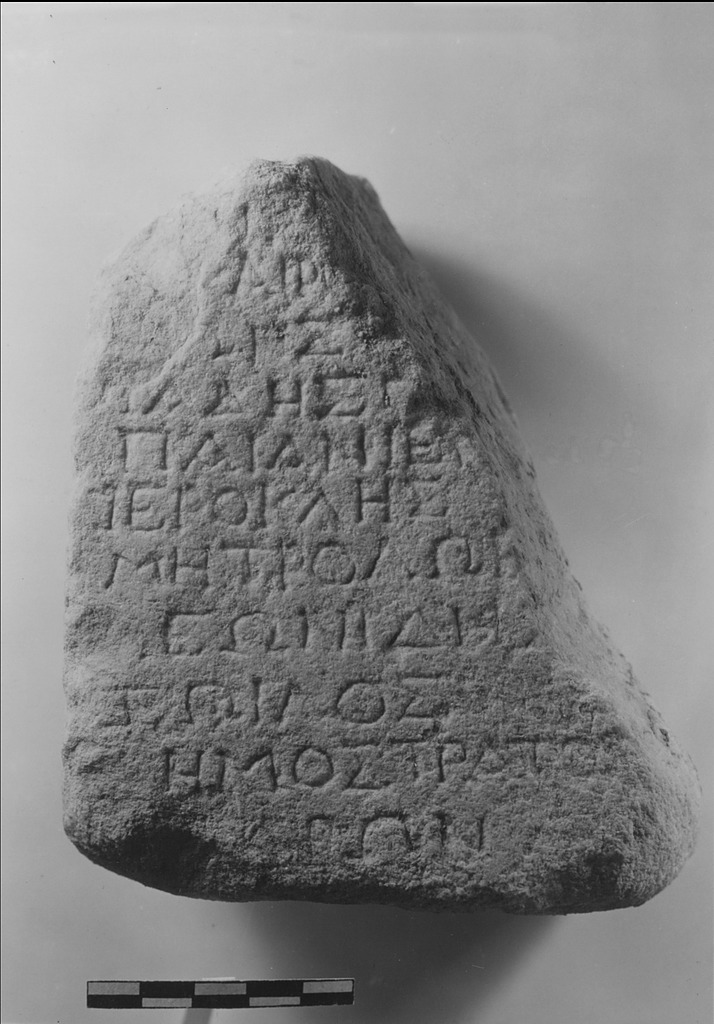 ΑΡ
ΗΣ
ΑΔΗΣ
ΠΑΙΑΝΙΕ
ΙΕΡΟΚΛΗΣ
ΜΗΤΡΟΔΩ
ΕΩΝΙΔΗ
ΖΩΙΛΟΣ
ΗΜΟΣΤΡΑΤΟ
ΩΝ